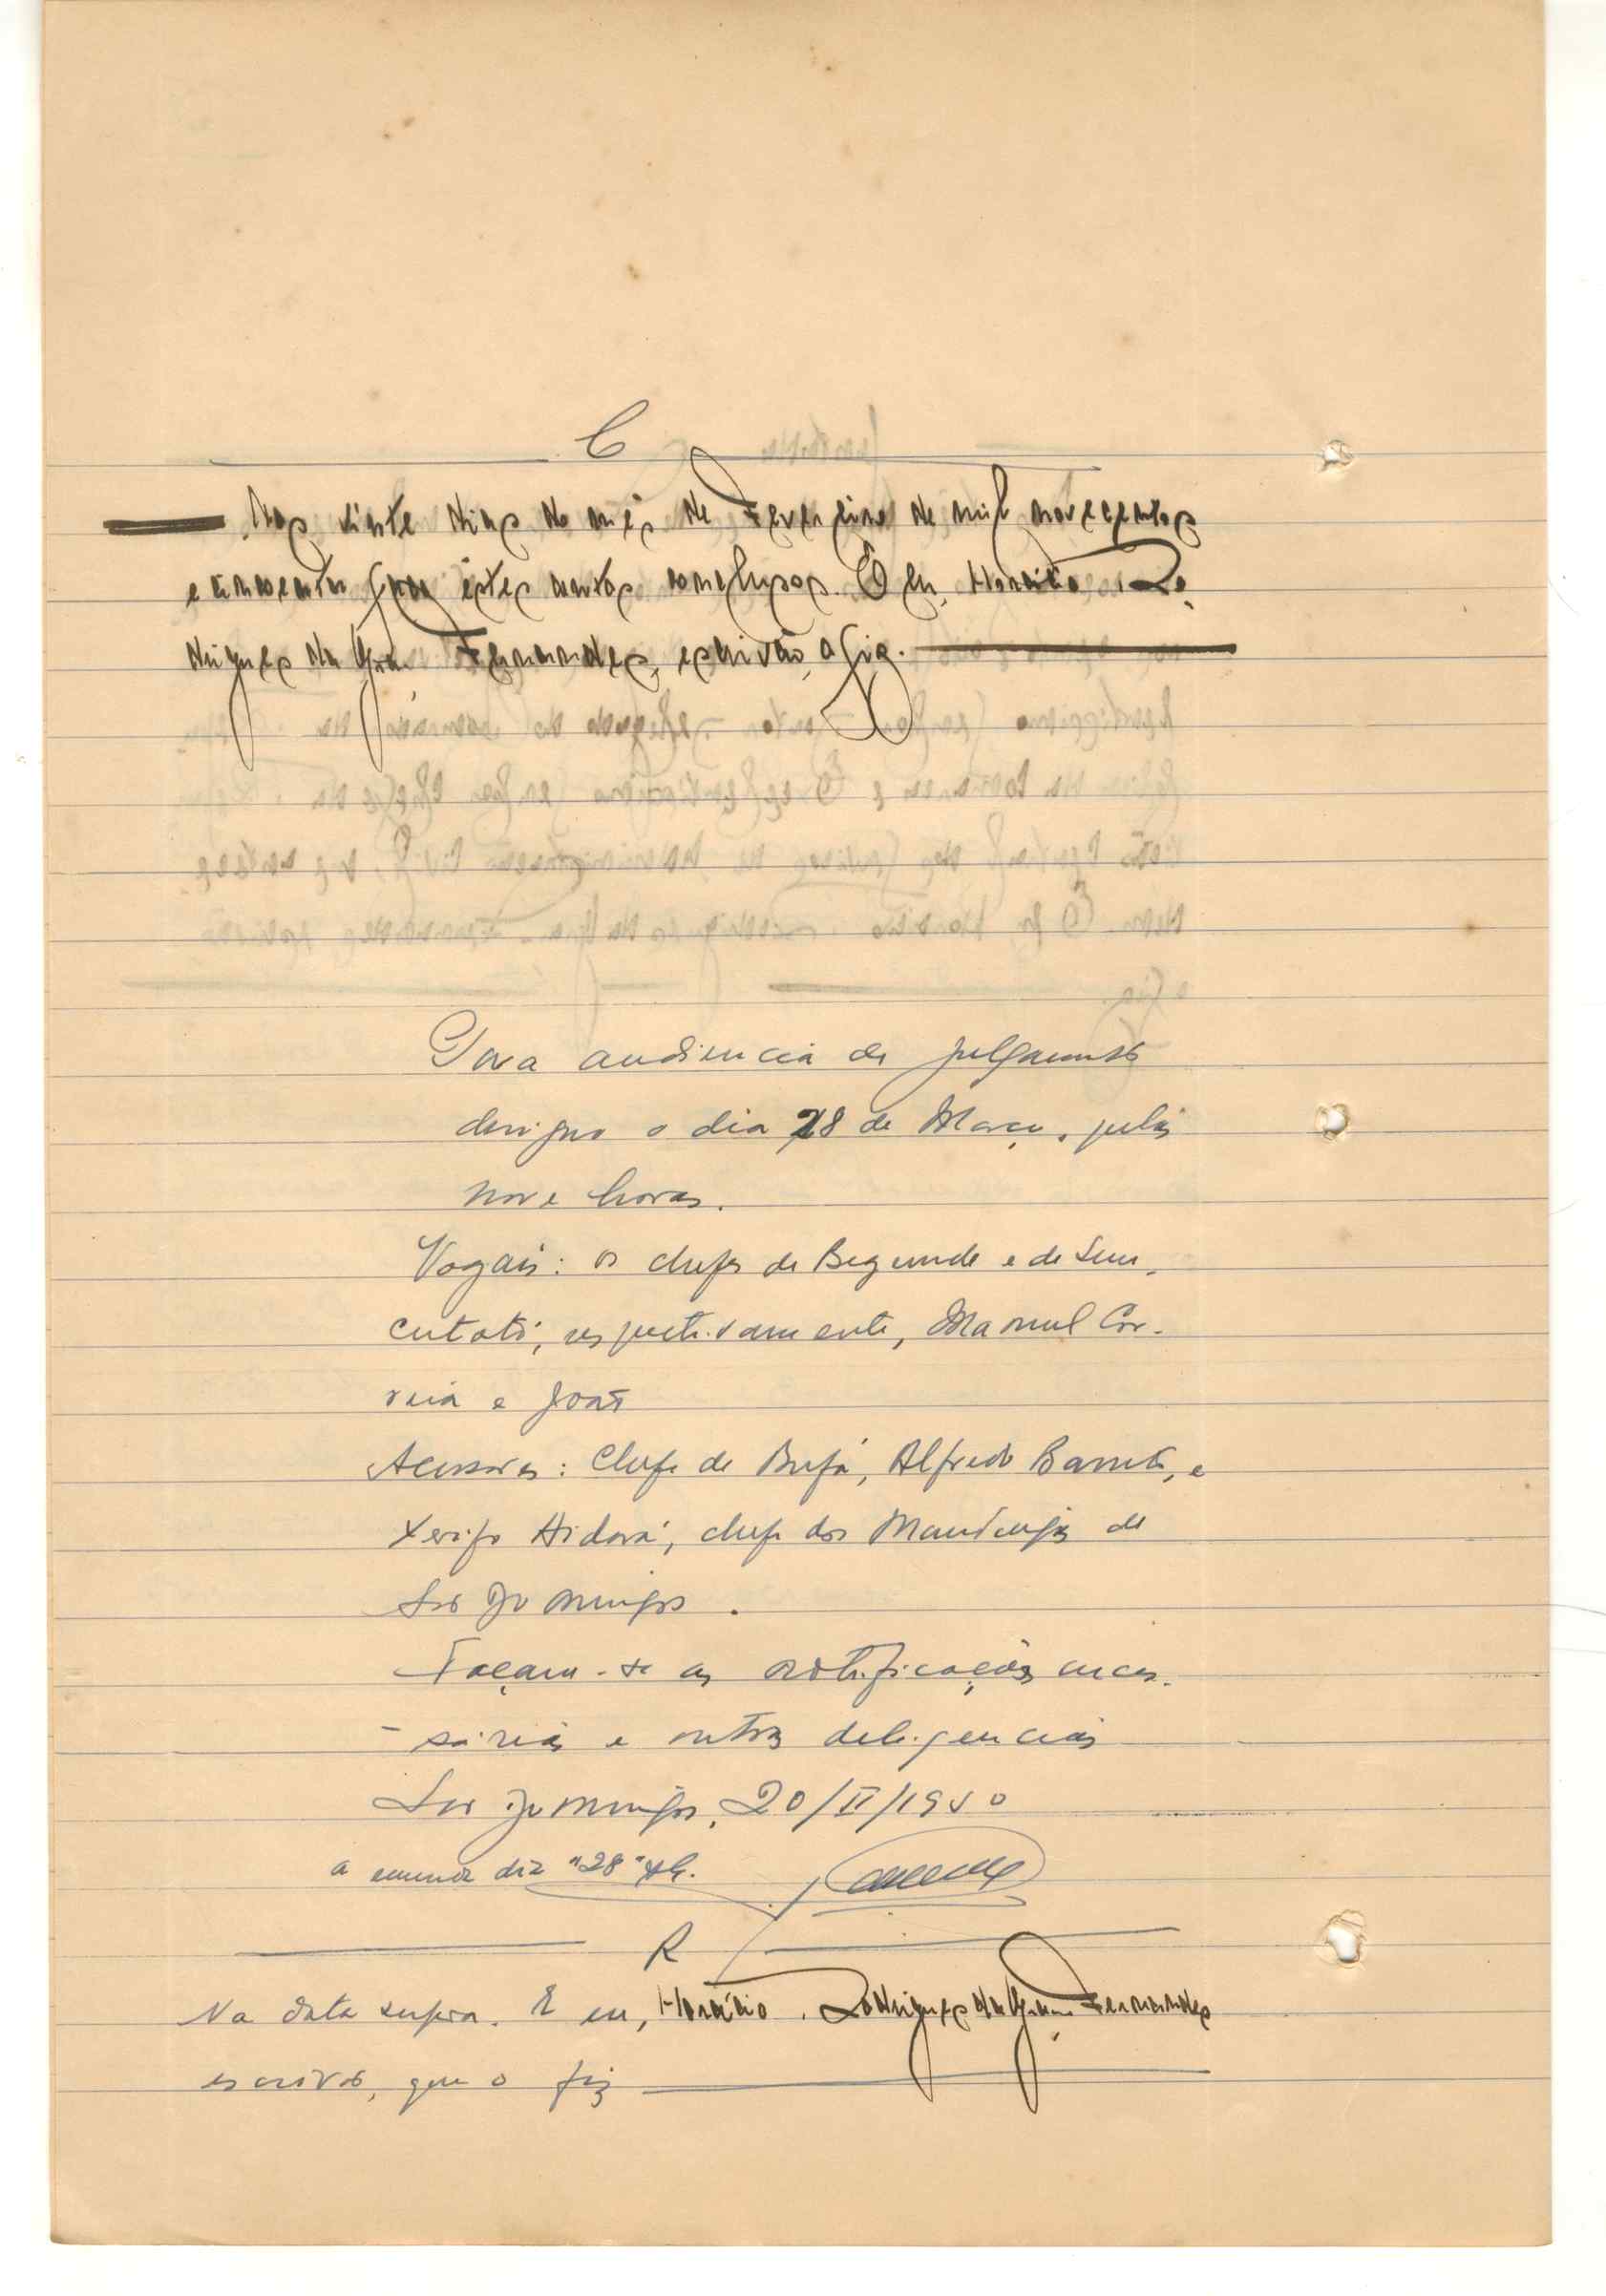 C
Aos vinte dias do mês de Fevereiro de mil novecentos
e cincoenta faço êstes autos conclusos. E eu, Horácio Ro
drigues da Graça Fernandes, escrivão, o fiz.
Para audiencia de julgamento
designo o dia 28 de Março, pelas
nove horas.
Vogais: os chefes de Begunde e de Sun-
cutoto, respectivamente, Manuel Cor-
reia e João
Acessores: Chefe de Bufa, Alfredo Barreto, e
Xerifo Aidará, chefe dos Mandingas de
São Domingos.
Façam-se as notificações neces-
-sárias e outras deligencias
São Domingos, 20/II/1950
a emenda diz "28"
R
Na data supra. E eu, Horácio Rodrigues da Graça Fernandes
escrivão, que o fiz